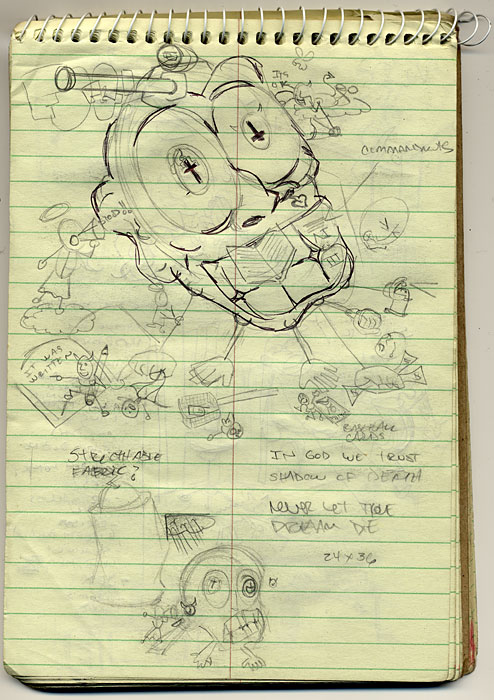 ITS
OK
COMMANDMENTS
DAD!!
IT WAS
WRITTEN
BASEBALL
CARDS
STRETCHABLE
FABRIC?
IN GOD WE TRUST
SHADOW OF DEATH
NEVER LET THE
DREAM DIE
24 x 36